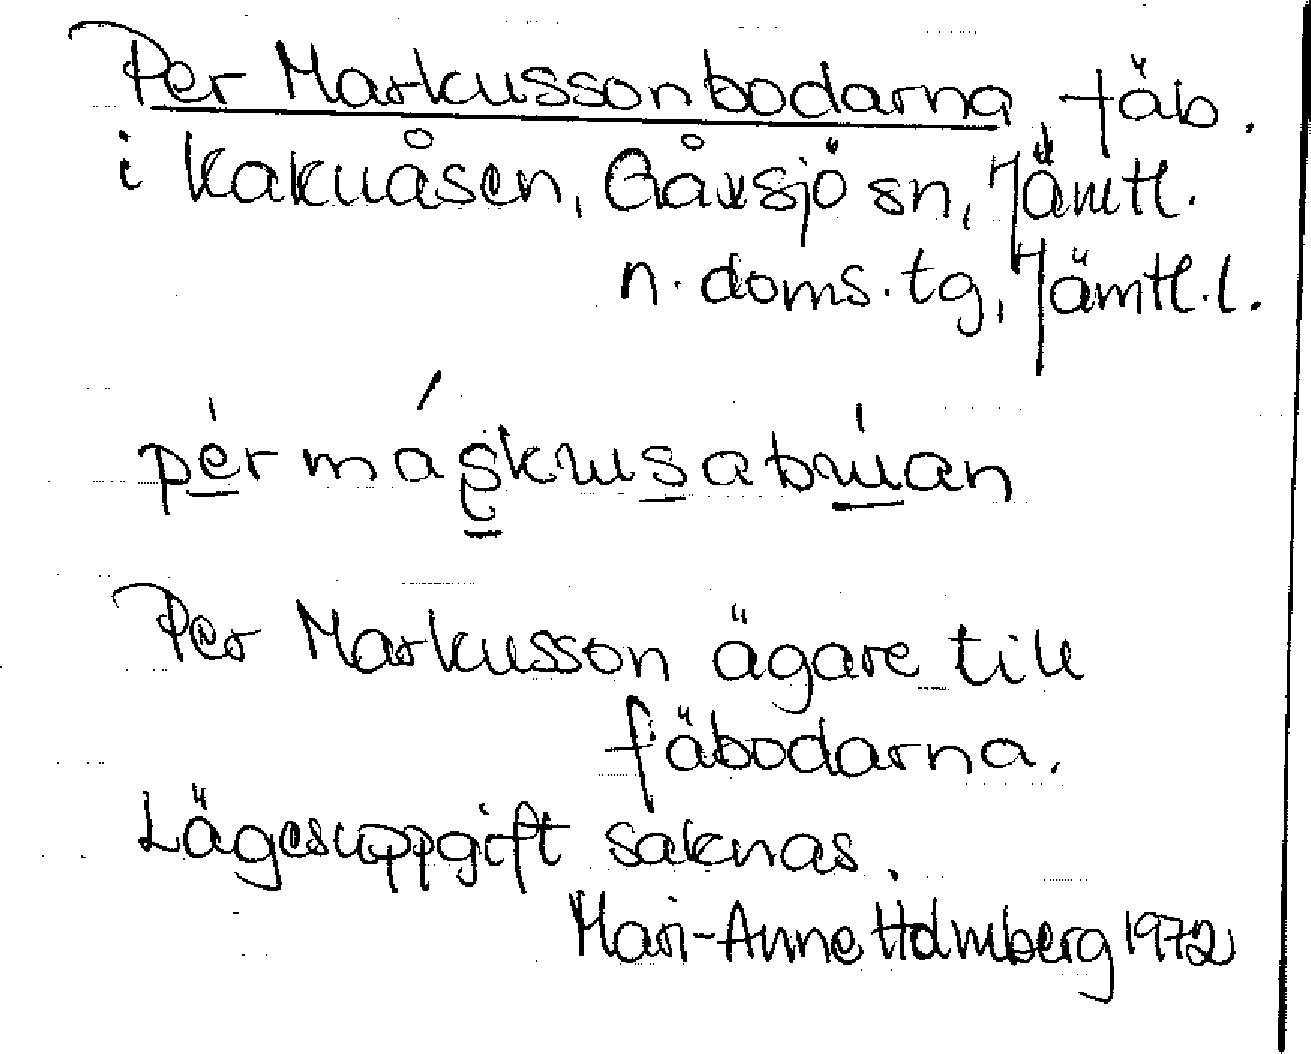 Per Markussonbodarna, fäb.
i Kakuåsen, Gåxsjö sn, Jämtl.
n. doms. tg, Jämtl. l.
Per Markusson ägare till
fäbodarna.
Lägesuppgift saknas.
Mari-Anne Holmberg 1972